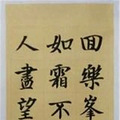 回樂峯
如霜不
人盡望